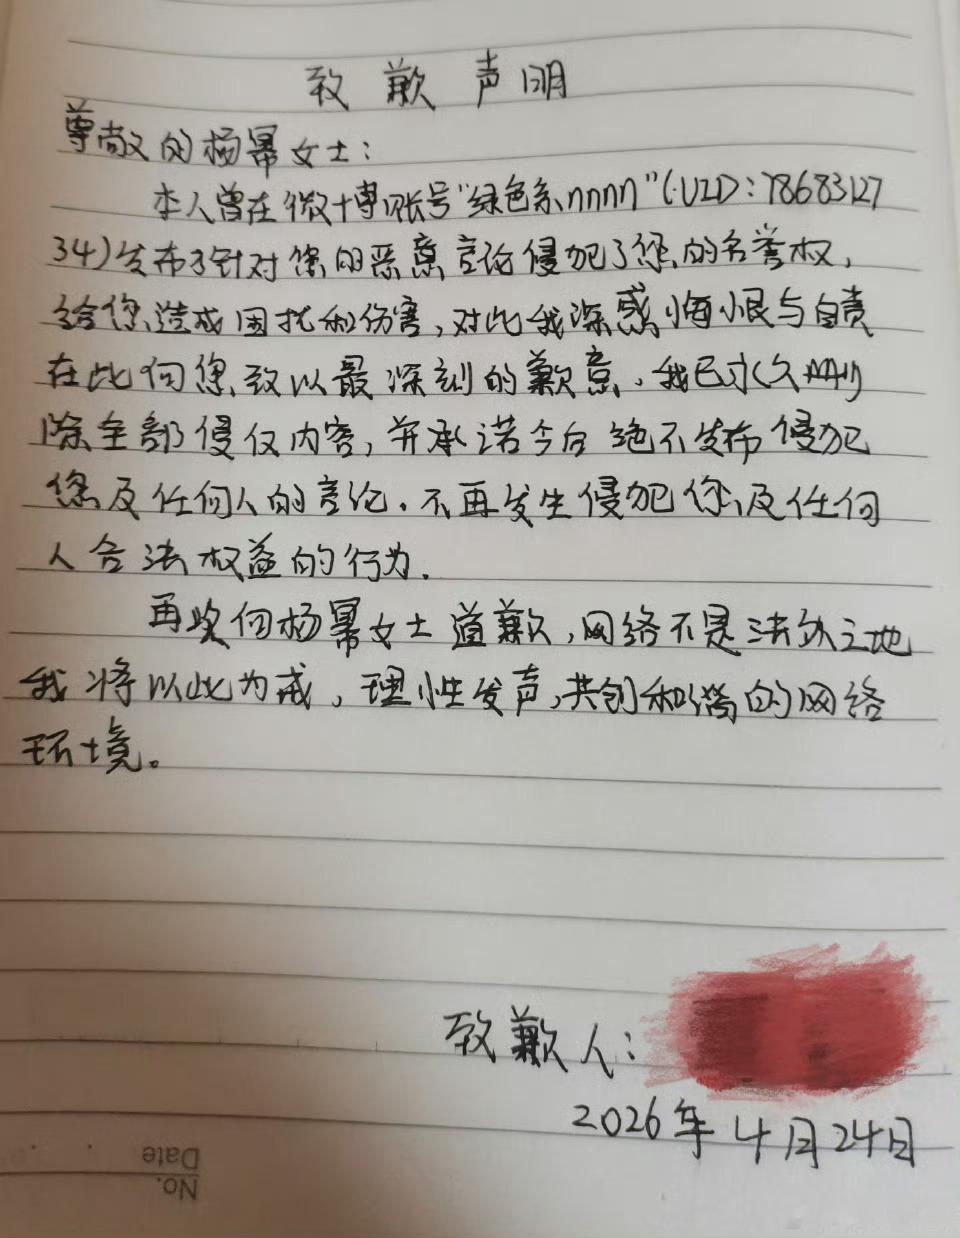 致歉声明
尊敬的杨幂女士：
本人曾在微博账号“绿色系nnnn”(UID：78683127
34)发布了针对您的恶意言论侵犯了您的名誉权，
给您造成困扰和伤害，对此我深感悔恨与自责
在此向您致以最深刻的歉意，我已永久删
除全部侵权内容，并承诺今后绝不发布侵犯
您及任何人的言论，不再发生侵犯您及任何
人合法权益的行为.
再次向杨幂女士道歉，网络不是法外之地
我将以此为戒，理性发声，共创和谐的网络
环境。
致歉人：
2026年4月24日
No.
Date